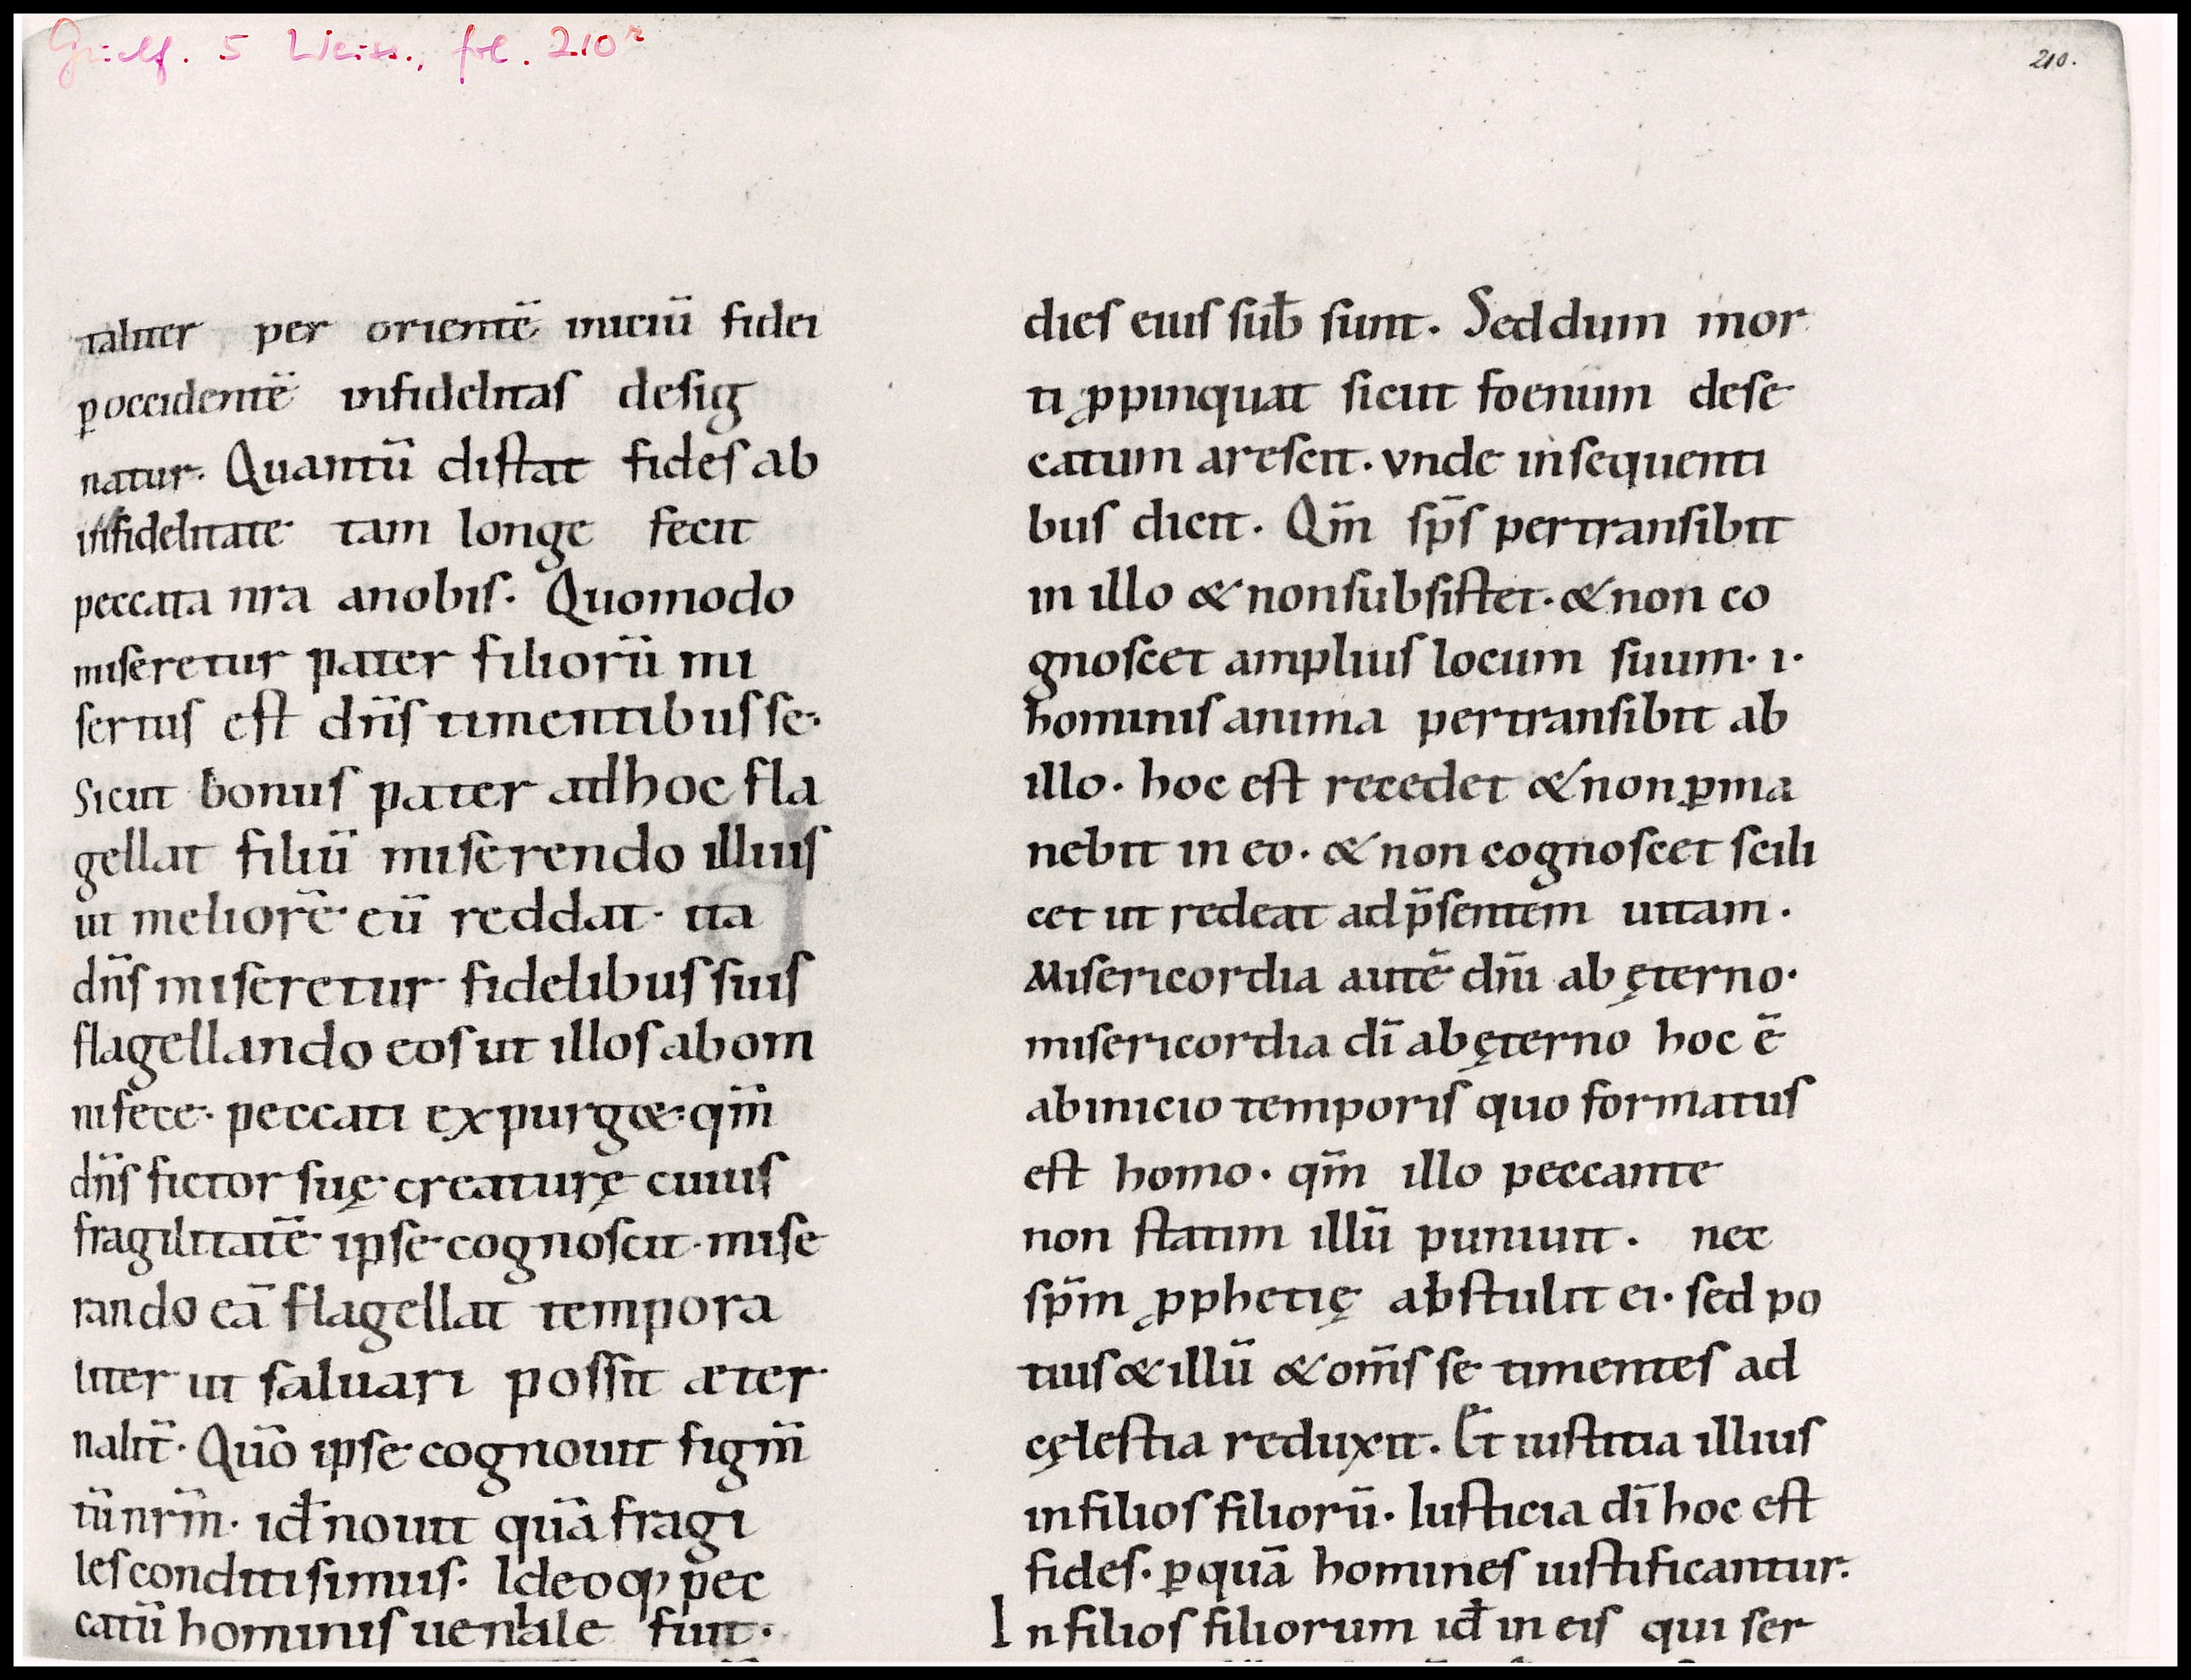 Guelf. 5 Weiss., fol. 210ʳ
210.
taliter per orientē iniciū fidei
ꝑ occidentē infidelitas desig
natur. Quantū distat fides ab
infidelitate tam longe fecit
peccata nra a nobis. Quomodo
miseretur pater filiorū mi
sertus est dn̄s timentibus se.
Sicut bonus pater ad hoc fla
gellat filiū miserendo illius
ut meliorē eū reddat. ita
dn̄s miseretur fidelibus suis
flagellando eos ut illos ab om
ni fece peccati expurget. qm̄
dn̄s fictor suę creaturę cuius
fragilitatē ipse cognoscit. mise
rando eā flagellat tempora
liter ut saluari possit æter
nalit̄. Quō ipse cognouit figm̄
tū nrm̄. id̄ nouit quā fragi
les conditi simus. Ideoqꝫ pec
catū hominis ueniale fuit.
dies eius sub̄ sunt. Sed dum mor
ti ꝓpinquat sicut foenum dese
catum arescit. vnde in sequenti
bus dicit. Qm̄ sp̄s pertransibit
in illo & non subsistet. & non co
gnoscet amplius locum suum. ı.
hominis anima pertransibit ab
illo. hoc est recedet & non ꝑma
nebit in eo. & non cognoscet scili
cet ut redeat ad p̄sentem uitam.
Misericordia autē dn̄i ab ęterno.
misericordia dī ab ęterno hoc ē
ab inicio temporis quo formatus
est homo. qm̄ illo peccante
non statim illū puniuit. nec
sp̄m ꝓphetię abstulit ei. sed po
tius & illū & om̄s se timentes ad
cęlestia reduxit. Et iustitia illius
in filios filiorū. Iusticia dī hoc est
fides. ꝑ quā homines iustificantur.
In filios filiorum id̄ in eis qui ser